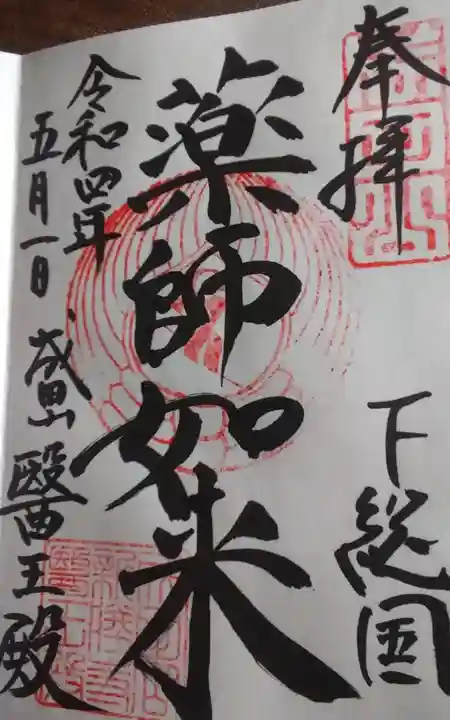 奉拝
下総国
薬師如来
令和四年
五月一日
成田山 醫王殿